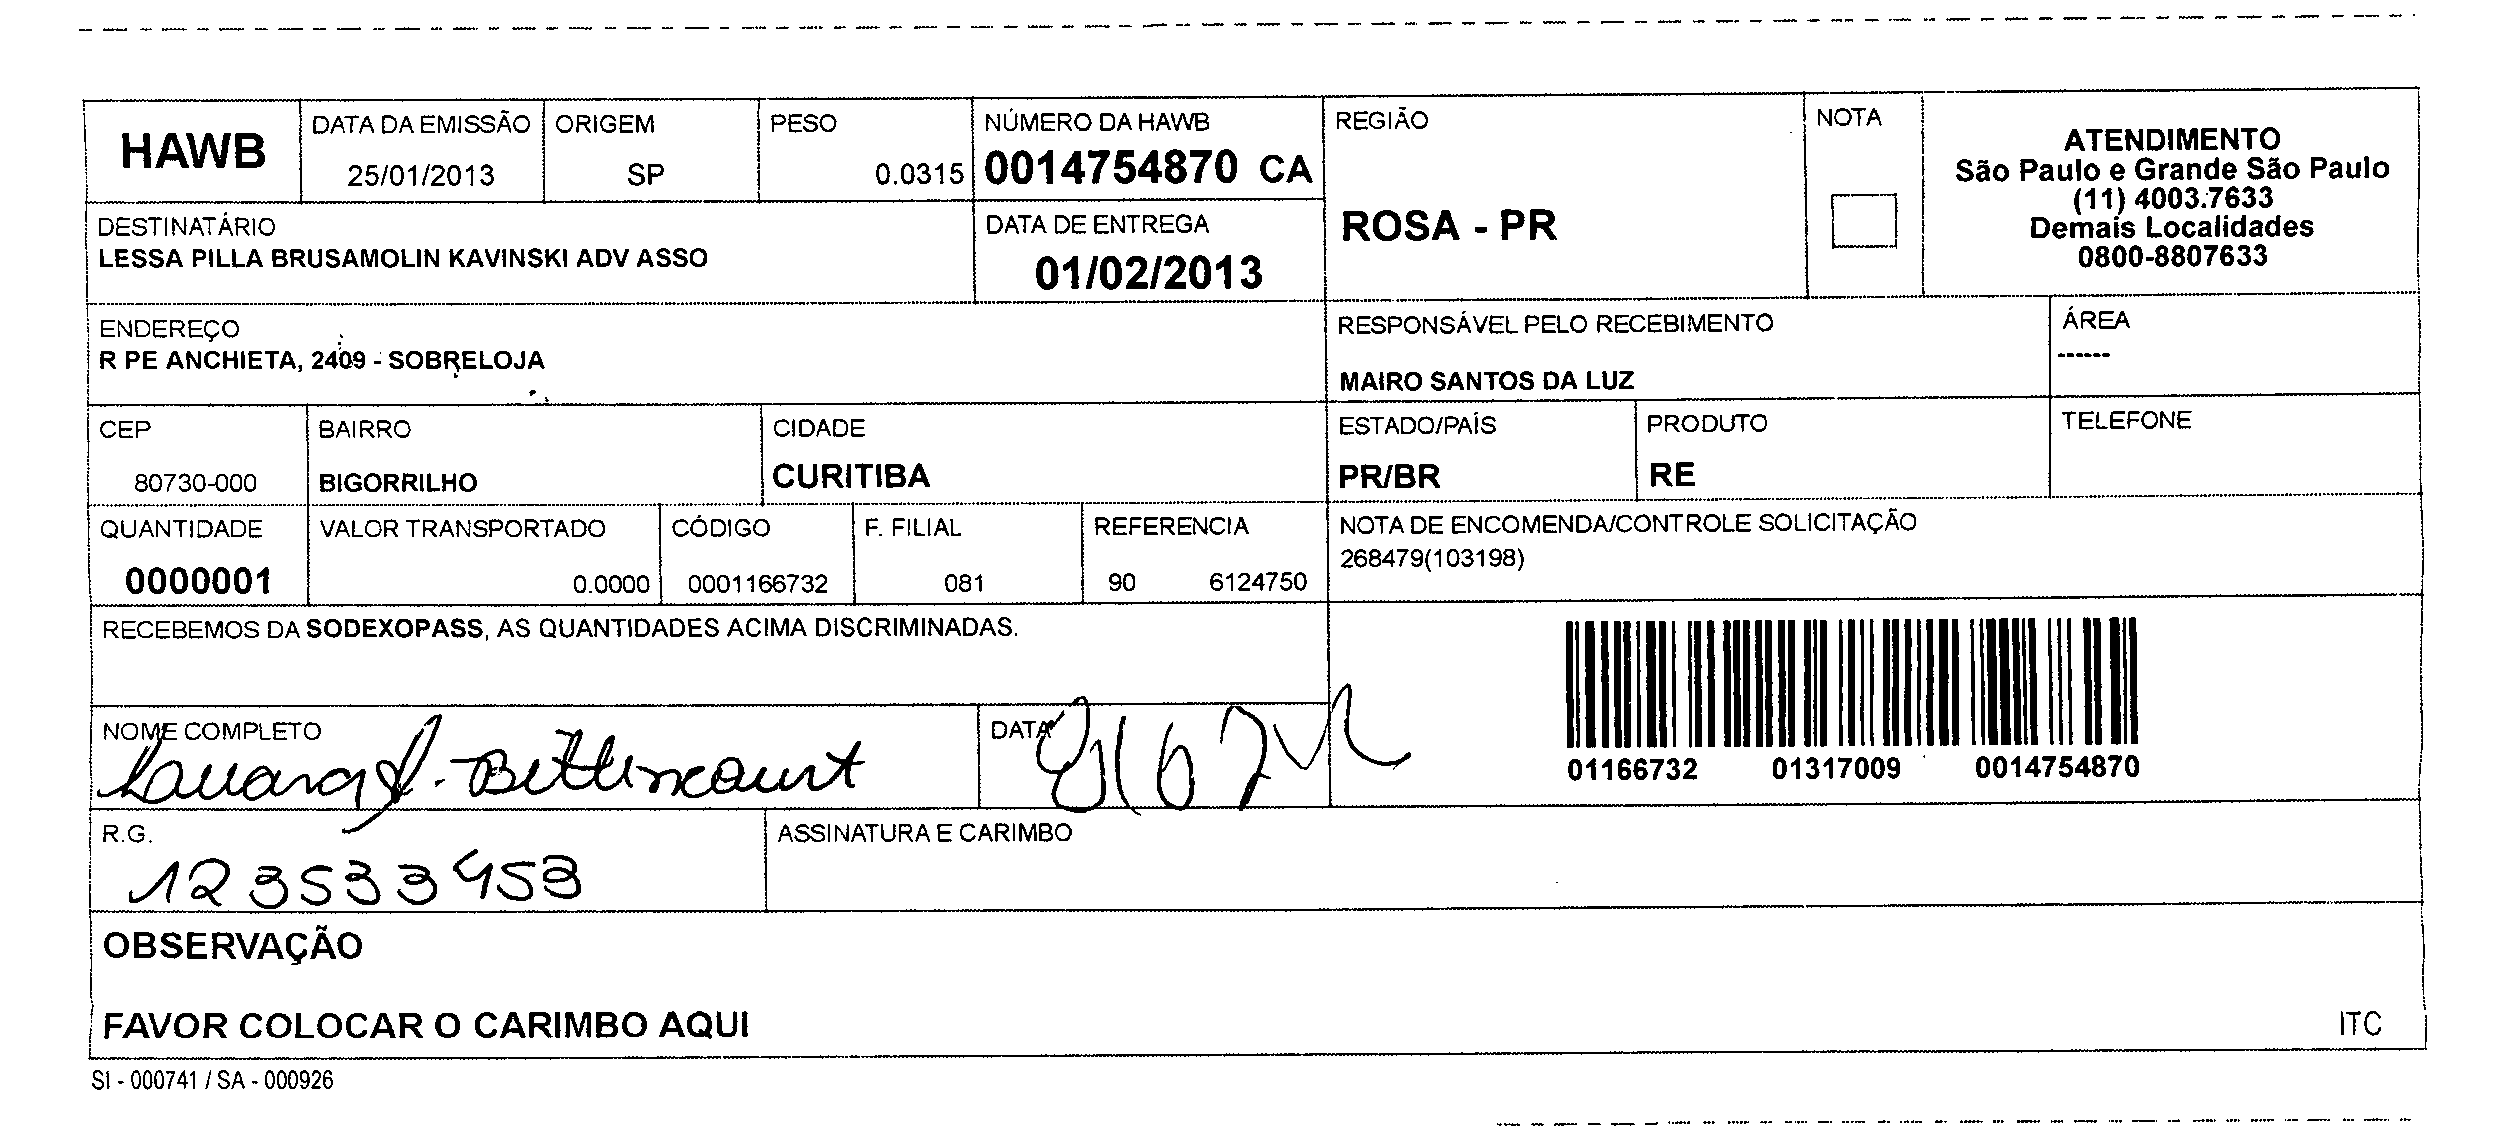 HAWB
DATA DA EMISSÃO
25/01/2013
ORIGEM
SP
PESO
0.0315
NÚMERO DA HAWB
0014754870 CA
REGIÃO
ROSA - PR
NOTA
ATENDIMENTO
São Paulo e Grande São Paulo
(11) 4003.7633
Demais Localidades
0800-8807633
DESTINATÁRIO
LESSA PILLA BRUSAMOLIN KAVINSKI ADV ASSO
DATA DE ENTREGA
01/02/2013
ENDEREÇO
R PE ANCHIETA, 2409 - SOBRELOJA
RESPONSÁVEL PELO RECEBIMENTO
MAIRO SANTOS DA LUZ
ÁREA
------
CEP
80730-000
BAIRRO
BIGORRILHO
CIDADE
CURITIBA
ESTADO/PAÍS
PR/BR
PRODUTO
RE
TELEFONE
QUANTIDADE
0000001
VALOR TRANSPORTADO
0.0000
CÓDIGO
0001166732
F. FILIAL
081
REFERENCIA
90 6124750
NOTA DE ENCOMENDA/CONTROLE SOLICITAÇÃO
268479(103198)
RECEBEMOS DA SODEXOPASS, AS QUANTIDADES ACIMA DISCRIMINADAS.
01166732 01317009 0014754870
NOME COMPLETO
Bittencourt
DATA
R.G.
123533453
ASSINATURA E CARIMBO
OBSERVAÇÃO
FAVOR COLOCAR O CARIMBO AQUI
ITC
SI - 000741 / SA - 000926